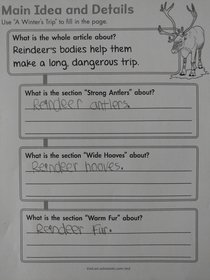 Main Idea and Details
Use "A Winter's Trip" to fill in the page.
What is the whole article about?
Reindeer's bodies help them
make a long, dangerous trip.
What is the section "Strong Antlers" about?
Reindeer antlers.
What is the section "Wide Hooves" about?
Reindeer hooves.
What is the section "Warm Fur" about?
Reindeer Fur.